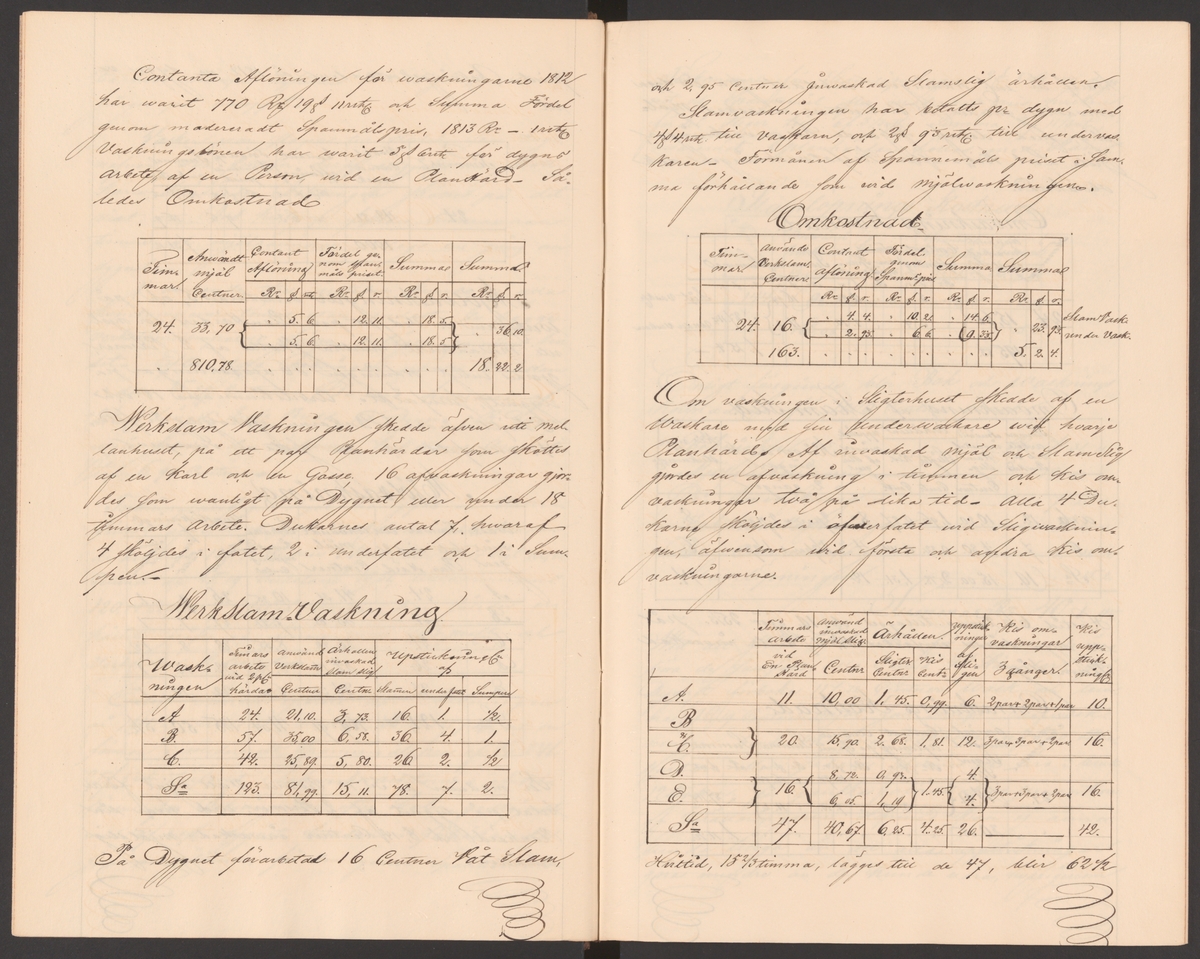 Contanta Aflöningen för waskningarne 1812
har warit 770 Rd 19 ß 11 rst och Summa Fördel
genom modereradt Spanmåls pris, 1813 Rd – 1 rst
Vaskningslönen har warit 5 ß 6 rst för dygns
arbete af en Person, wid en Planhärd – Så-
ledes Omkostnad
Tim-mar Användt mjöl Centner Contant Aflöning Fördel ge-nom Span-måls priset Summa Summa
Rd ß r. Rd ß r. Rd ß r. Rd ß r.
24. 33,70 5. 6. 12. 11. 18. 5. 36. 10.
5. 6. 12. 11. 18. 5.
810,78. 18. 22. 2
Werkslam Vaskningen skedde äfven uti mel-
lanhuset, på ett par Planhärdar som sköttes
af en Karl och en Gosse. 16 afvaskningar gjor-
des som wanligt på Dygnet eller under 18
timmars Arbete. Dukarnes antal 7, hwaraf
4 sköljdes i fatet, 2 i underfatet och 1 i Sum-
pen. –
Werkslam-Vaskning
Wask-ningen Timars arbete wid 2 pl. härdar Använd Verkslam Centner Ärhållen inwaskad Slam slig Centnr Uppstickning af
Slamm underfat Sumpen
A 24. 21,10. 3,73. 16. 1. ½.
B. 57. 35,00 6,58. 36. 4. 1.
C. 42. 25,89. 5,80. 26. 2. ½
Sa 123. 81,99. 15,11. 78. 7. 2.
På Dygnet förarbetad 16 Centner våt Slam,
och 2,95 Centner inwaskad Slamslig ärhållen.
Slamvaskningen har betalts pr dygn med
4 ß 4 rst till vaskarn, och 2 ß 9⅗ rst till undervas-
karen – Formånen af Spannemåls priset i Sam-
ma förhållande som wid mjölwaskningen.
Omkostnad
Tim-mar Använde Verkslam Centner Contant aflöning Fördel genom Spanm. pris Summa Summa
Rd ß r. Rd ß r. Rd ß r. Rd ß r.
24. 16. 4. 4. 10. 2. 14. 6. 23. Slam Vask.
2. 6. 6. 9. under Vask.
163. 5. 2. 4.
Om vaskningen i Sligterhuset skedde af en
Waskare med sin Underwaskare wid hvarje
Planhärd. Af inwaskad mjöl och Slam Slig
gjordes en afvaskning i timmen och Kis om-
vaskningar två på lika tid – Alla 4 Du-
karne sköljdes i öfwerfatet wid Sligvasknin-
gen, äfwensom wid första och andra Kis om-
vaskningarne.
Timmars Arbete vid En Plan härd Använd inwaskad mjöl Slig Centnr Ärhållen Sligter Centnr Kis Centr af Sligen Kis om-vaskningar 3 gånger. Kis upp-stick-ning
A. 11. 10,00 1,45. 0,99. 6. 2par+2par+1par 10.
B
C. 20. 15,90. 2.68. 1.81. 12. 3par+3par+2par 16.
D. 8,72. 0,93. 4.
16. 1.45. 3par+3par+2par 16.
E. 6,05 1,19 4.
Sa 47. 40,67. 6,25. 4.25. 26. 42.
timma, lägges till de 47, blir 62½